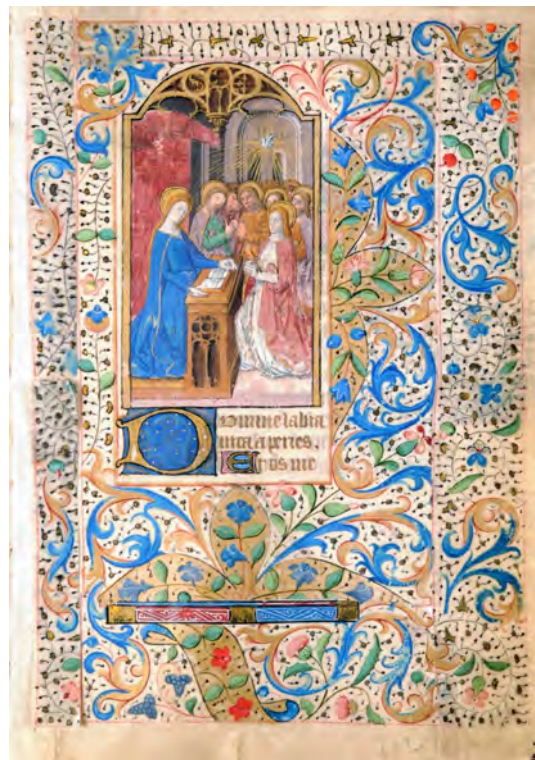 Domine labia
mea aperies.
Et os me